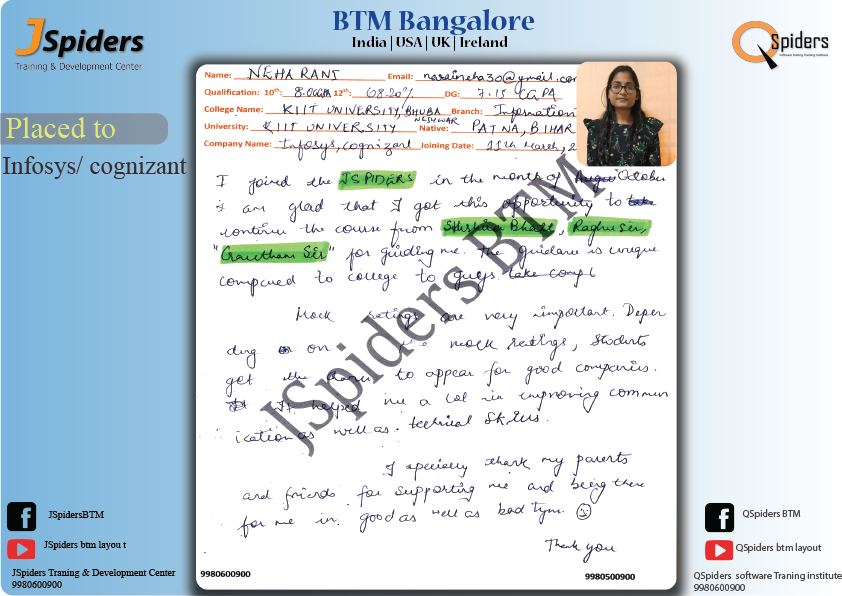 BTM Bangalore
India | USA | UK | Ireland
JSpiders
Training & Development Center
QSpiders
Software Testing Training Institute
Placed to
Infosys/ cognizant
Name: NEHA RANI Email:
Qualification: 10th: 8.0CGPA 12th: 68.20% DG: 7.15 CGPA
College Name: KIIT UNIVERSITY, BHUBANESHWAR Branch: Information
University: KIIT UNIVERSITY Native: PATNA, BIHAR
Company Name: Infosys, Cognizant Joining Date: 11th March, 2
I joined the JSPIDERS in the month of October
i am glad that I got this opportunity to
continue the course from Bhatt, Raghu Sir,
"Gowtham Sir" for guiding me. The guidance is unique
compared to college to guys.
Mock ratings are very important. Depen
ding on the mock ratings, students
get the chance to appear for good companies.
It helped me a lot in improving commun
ication as well as technical skills.
I specially thank my parents
and friends for supporting me and being there
for me in good as well as bad tym.
Thank you
9980600900
9980500900
JSpiders BTM
JSpidersBTM
JSpiders btm layou t
JSpiders Traning & Development Center
9980600900
QSpiders BTM
QSpiders btm layout
QSpiders software Traning institute
9980600900